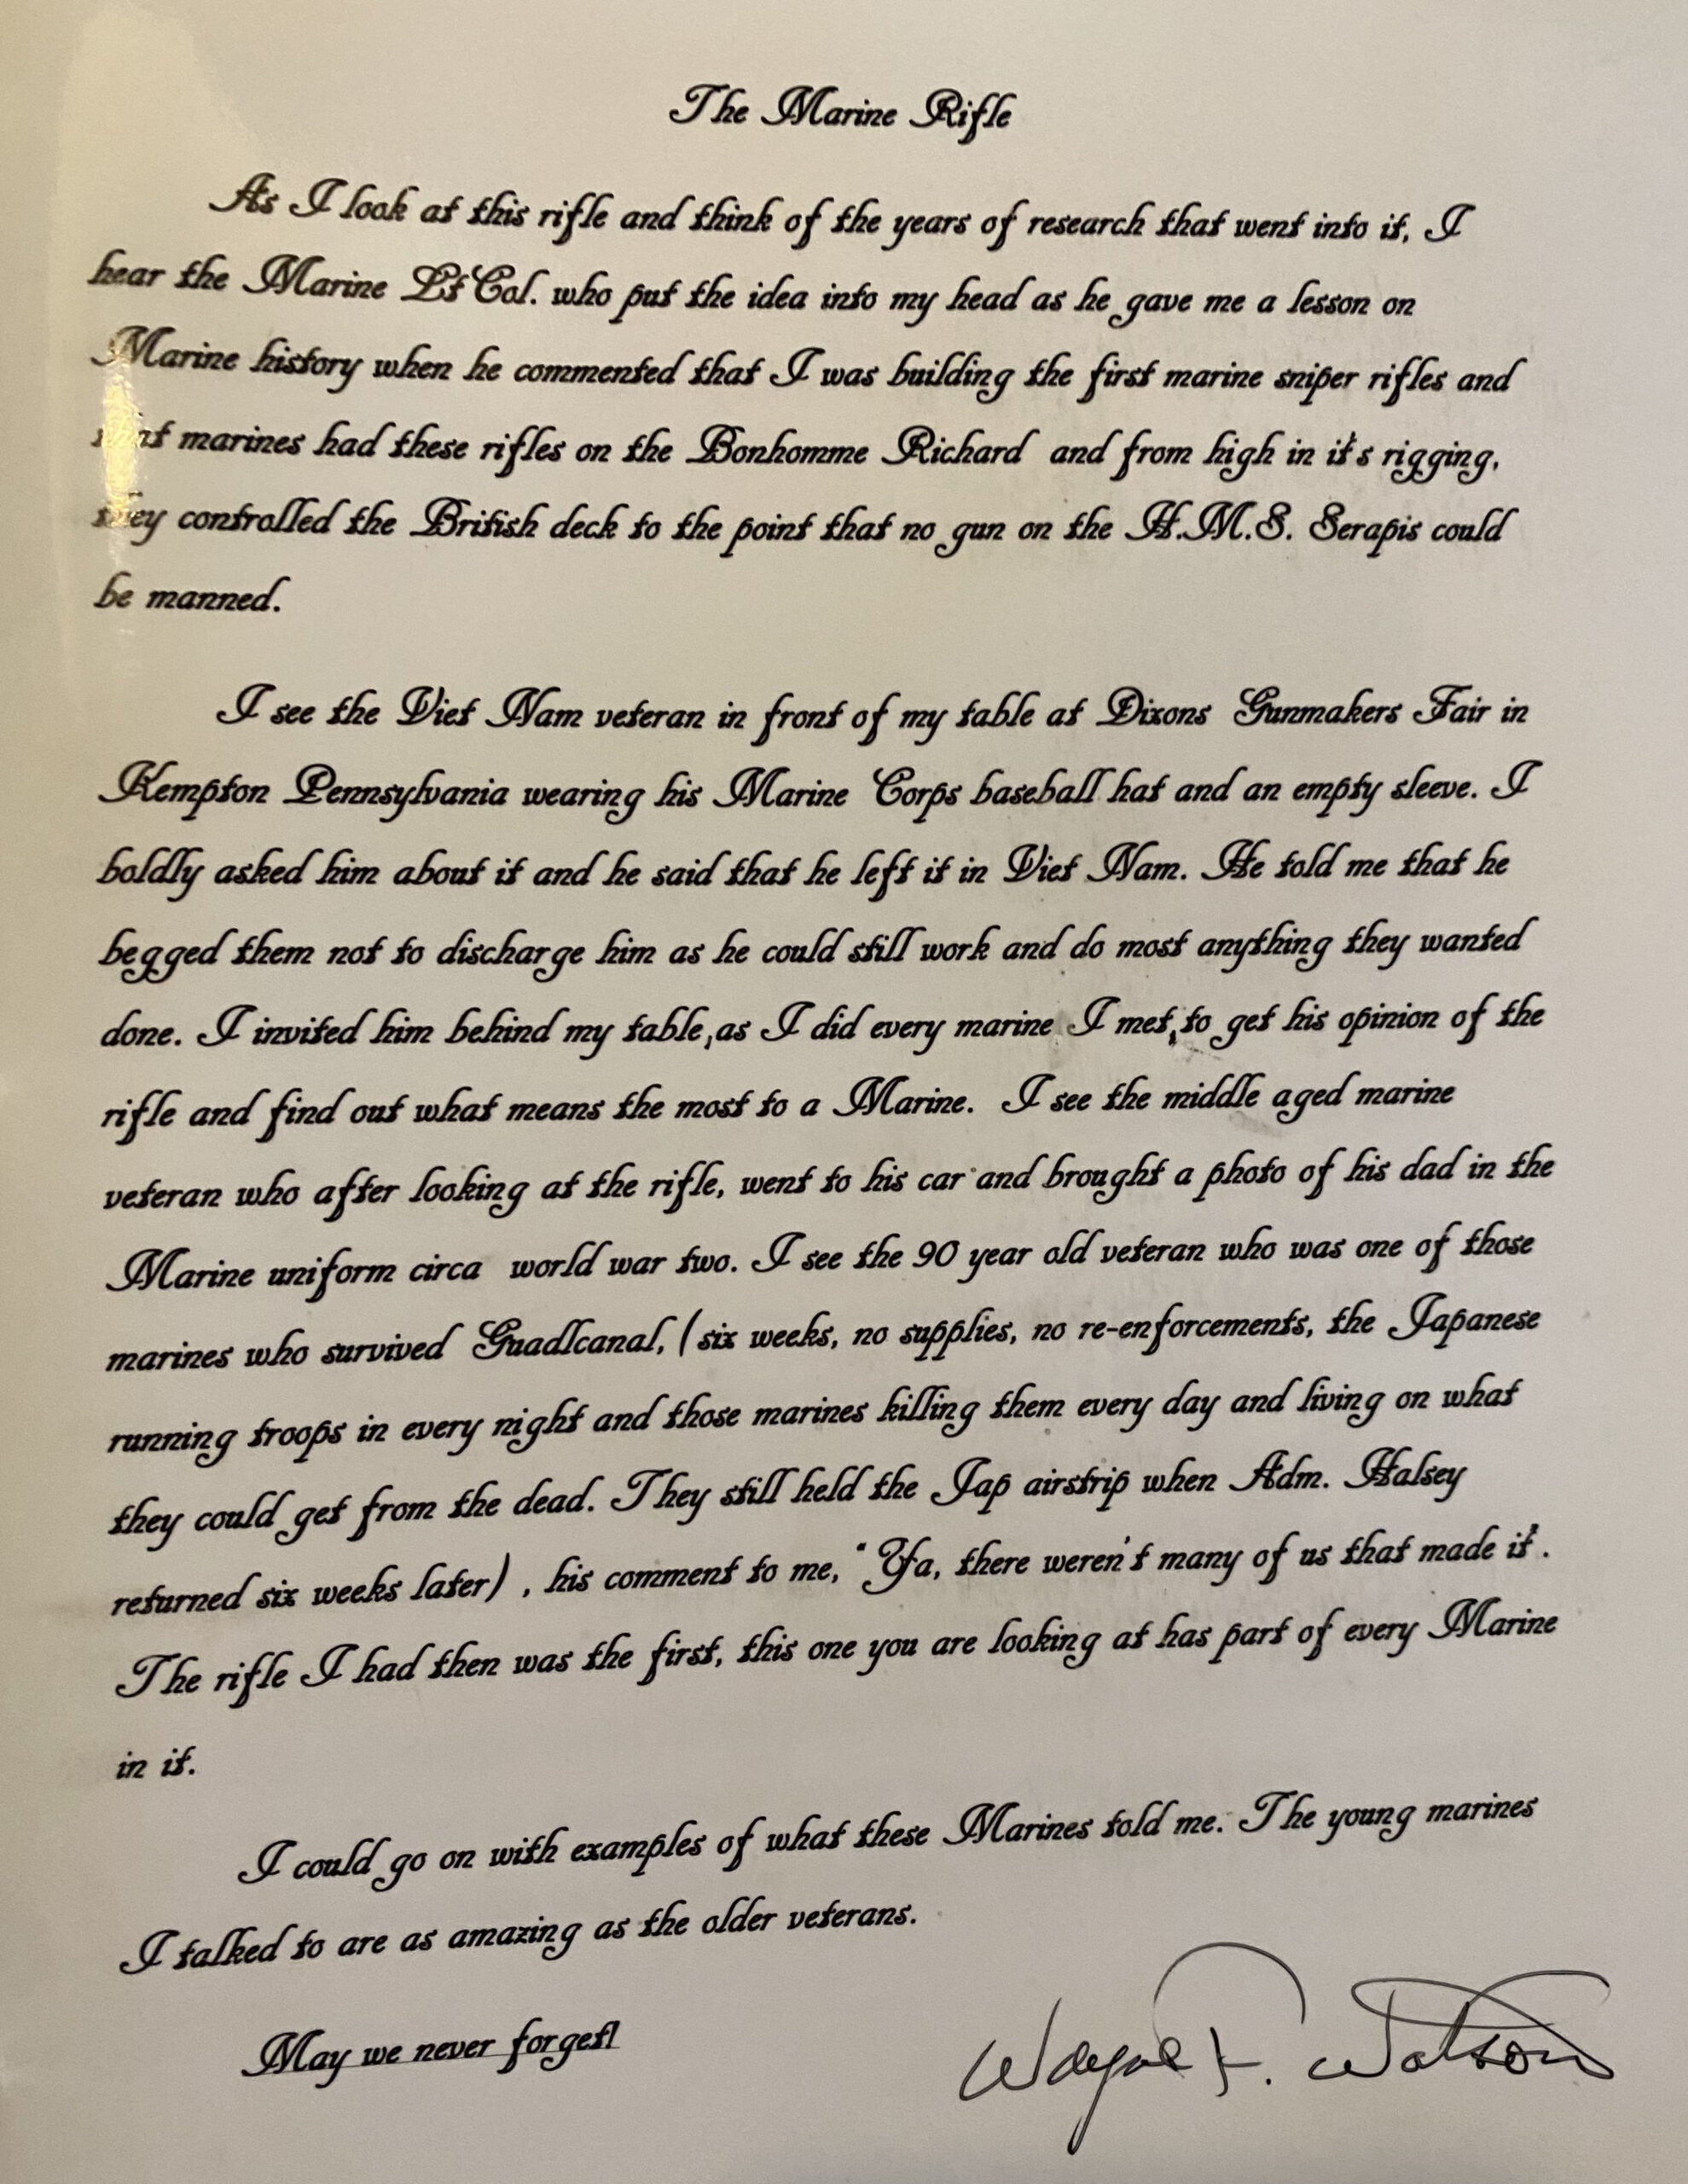 The Marine Rifle
As I look at this rifle and think of the years of research that went into it, I
hear the Marine Lt Col. who put the idea into my head as he gave me a lesson on
Marine history when he commented that I was building the first marine sniper rifles and
marines had these rifles on the Bonhomme Richard and from high in it's rigging,
they controlled the British deck to the point that no gun on the H.M.S. Serapis could
be manned.
I see the Viet Nam veteran in front of my table at Dixons Gunmakers Fair in
Kempton Pennsylvania wearing his Marine Corps baseball hat and an empty sleeve. I
boldly asked him about it and he said that he left it in Viet Nam. He told me that he
begged them not to discharge him as he could still work and do most anything they wanted
done. I invited him behind my table, as I did every marine I met, to get his opinion of the
rifle and find out what means the most to a Marine. I see the middle aged marine
veteran who after looking at the rifle, went to his car and brought a photo of his dad in the
Marine uniform circa world war two. I see the 90 year old veteran who was one of those
marines who survived Guadlcanal, (six weeks, no supplies, no re-enforcements, the Japanese
running troops in every night and those marines killing them every day and living on what
they could get from the dead. They still held the Jap airstrip when Adm. Halsey
returned six weeks later) , his comment to me, " Ya, there weren't many of us that made it".
The rifle I had then was the first, this one you are looking at has part of every Marine
in it.
I could go on with examples of what these Marines told me. The young marines
I talked to are as amazing as the older veterans.
May we never forget!
Wayne F. Watson